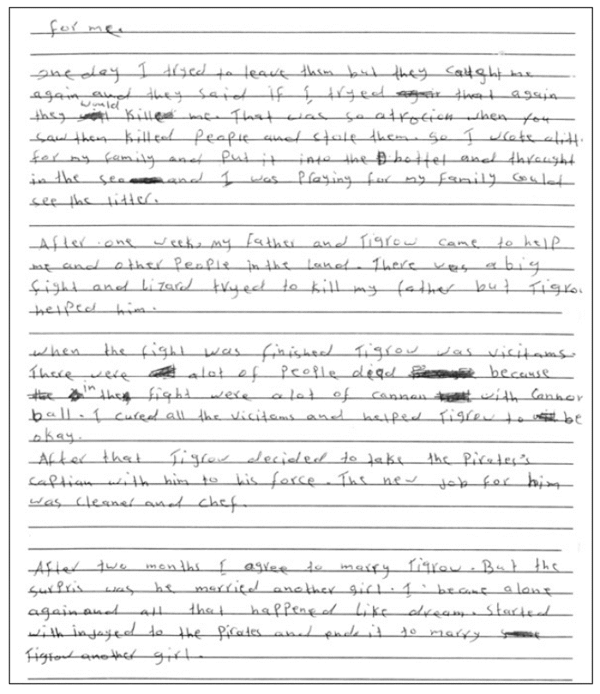 for me.
one day I tryed to leave them but they caught me
again and they said if I tryed that again
they would Killed me. That was so atrocion when you
saw them killed People and stole them. So I wrote alitt.
for my family and Put it into the bottel and throught
in the sea and I was Praying for my family Could
see the litter.
After one week, my father and Tigrow came to help
me and other People in the land. There was a big
fight and Lizard tryed to kill my father but Tigro.
helped him.
when the fight was finished Tigrow was vicitams.
There were alot of People dead because
in the fight were alot of cannon with Cannor
ball. I cured all the vicitams and helped Tigrew to be
okay.
After that Tigrow decided to take the Pirates's
caption with him to his force. The new job for him
was cleaner and chef.
After two months I agree to marry Tigrow. But the
surpris was he married another girl. I became alone
again and all that happened like dream. Started
with injoyed to the Pirates and ende it to marry
Tigrow another girl.